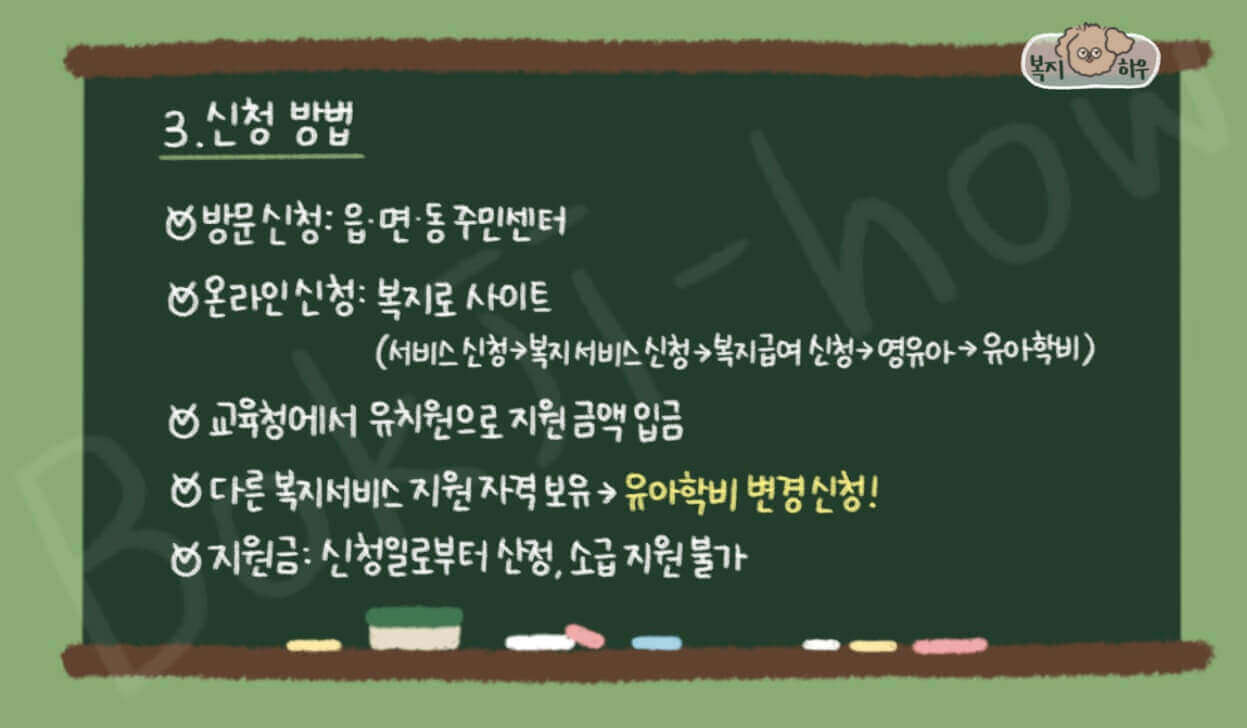 복지 하우
3. 신청 방법
방문 신청: 읍·면·동 주민센터
온라인 신청: 복지로 사이트
(서비스 신청→복지 서비스 신청→복지급여 신청→영유아→유아학비)
교육청에서 유치원으로 지원 금액 입금
다른 복지서비스 지원 자격 보유→유아학비 변경 신청!
지원금: 신청일로부터 산정, 소급 지원 불가
Bokji-how